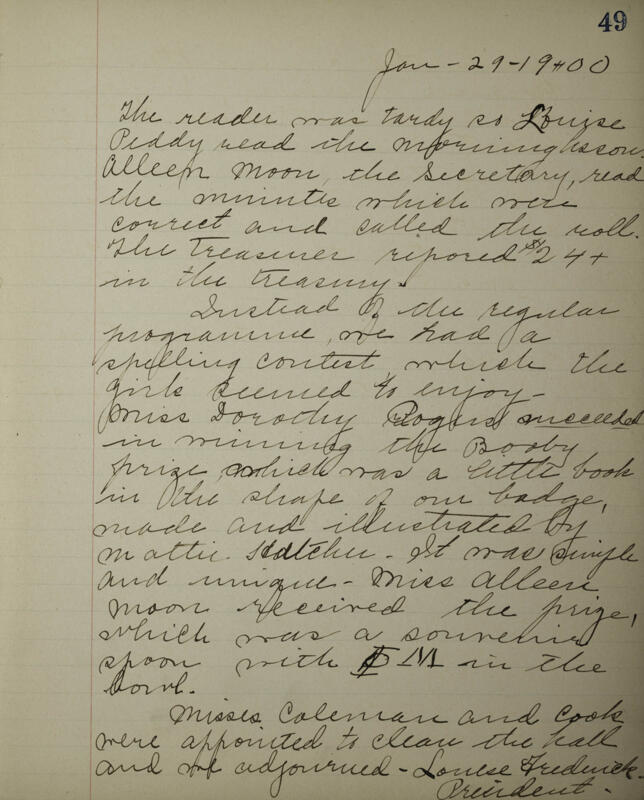 49
Jan - 29 - 1900
The reader was tardy so Louise
Peddy read the morning lesson.
Alleen Moon, the Secretary, read
the minutes which were
correct and called the roll.
The Treasurer repored $24
in the treasury.
Instead of the regular
programme, we had a
spelling contest, which the
girls seemed to enjoy -
Miss Dorothy Rogers succeeded
in winning the Booby
prize, which was a little book
in the shape of our badge,
made and illustrated by
Mattie Hatcher - It was simple
and unique - Miss Alleen
Moon received the prize,
which was a souvenir
spoon with Φ M in the
bowl.
Misses Coleman and Cook
were appointed to clean the hall
and we adjourned - Louise Frederick.
President -